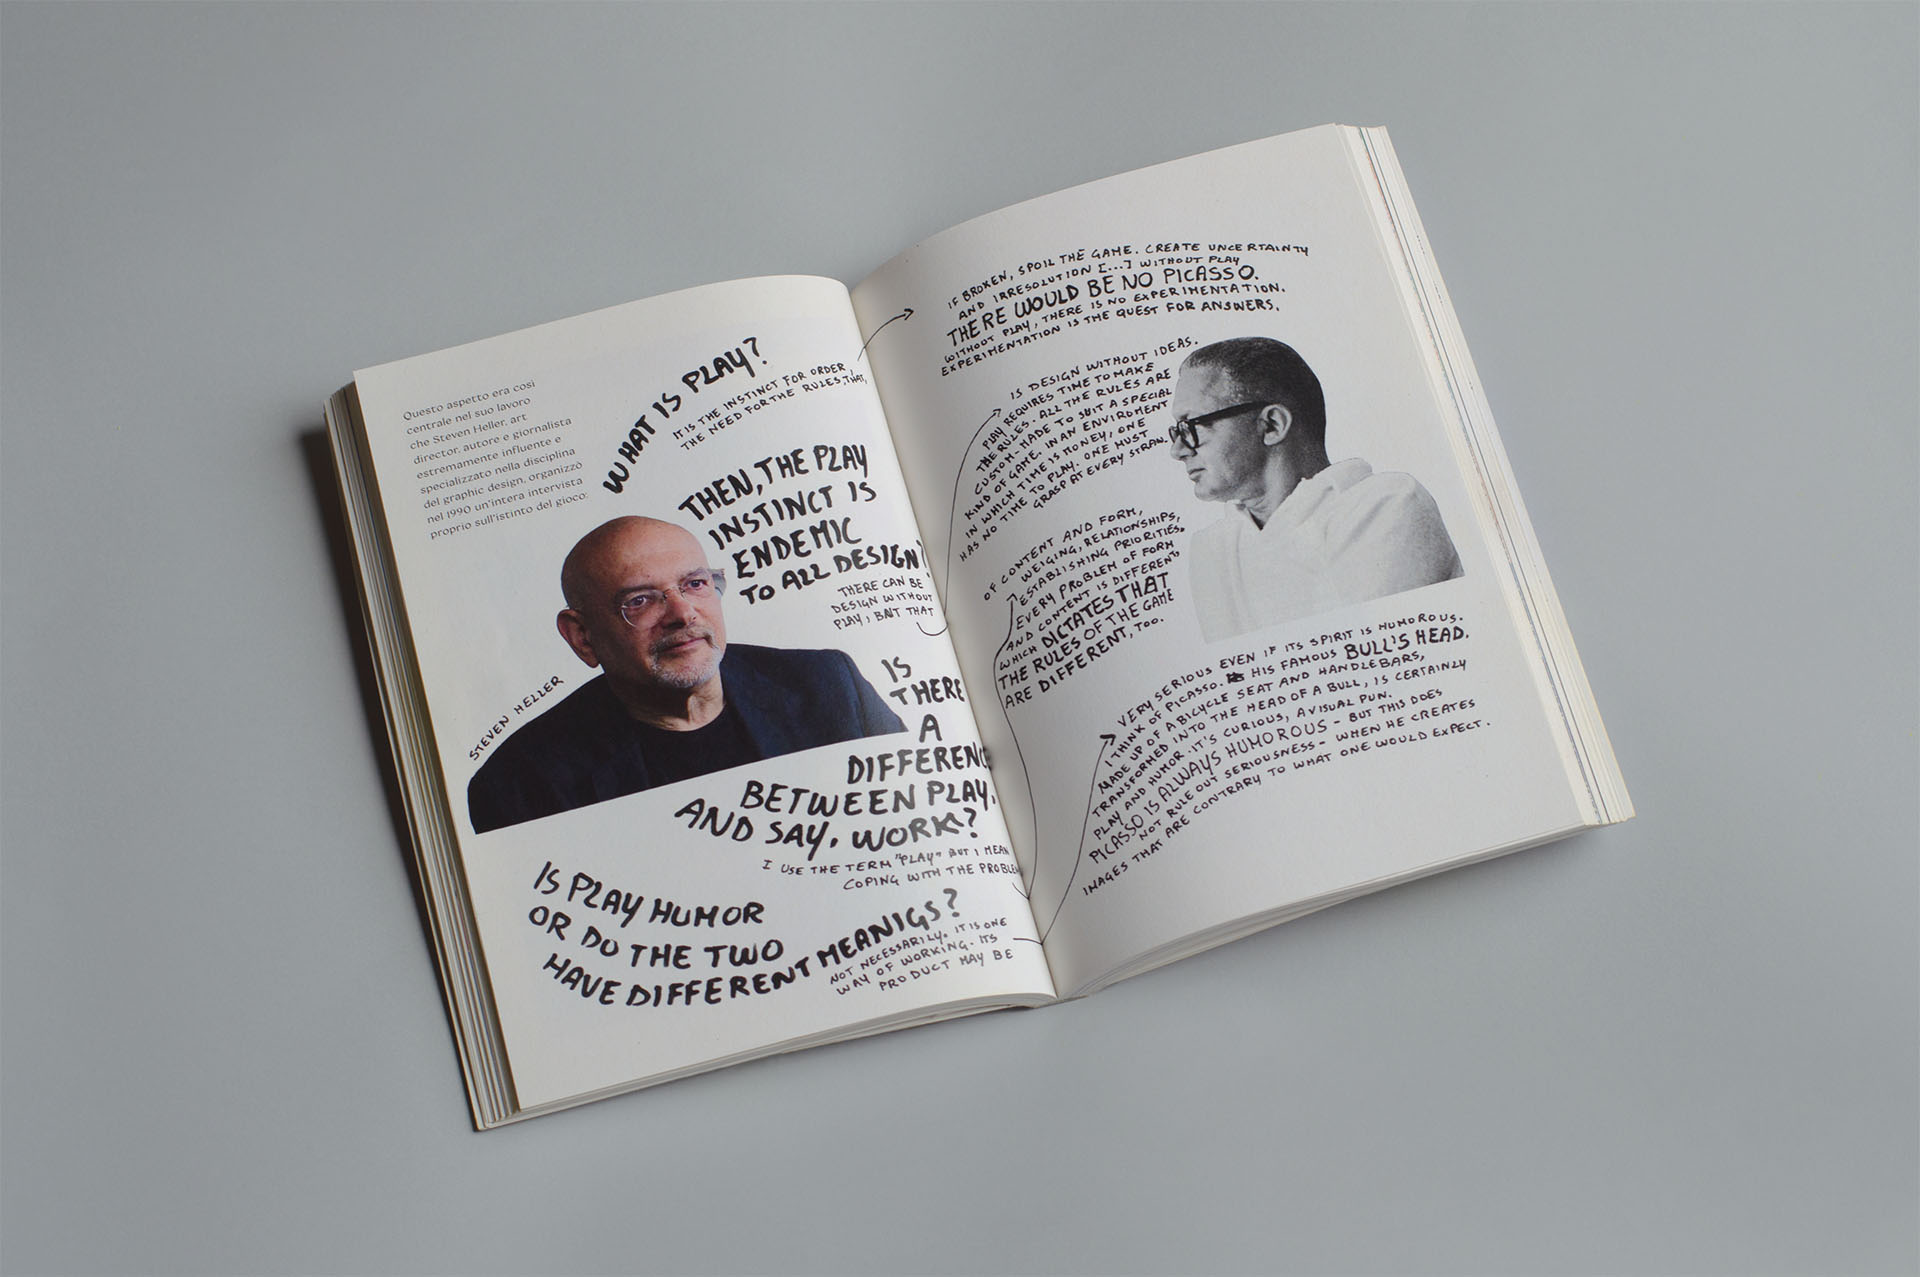 Questo aspetto era così
centrale nel suo lavoro
che Steven Heller, art
director, autore e giornalista
estremamente influente e
specializzato nella disciplina
del graphic design, organizzò
nel 1990 un'intera intervista
proprio sull'istinto del gioco:
WHAT IS PLAY?
IT IS THE INSTINCT FOR ORDER,
THE NEED FOR THE RULES, THAT,
THEN, THE PLAY
INSTINCT IS
ENDEMIC
TO ALL DESIGN?
THERE CAN BE
DESIGN WITHOUT
PLAY, BAT THAT
STEVEN HELLER
IS
THERE
A
DIFFERENCE
BETWEEN PLAY,
AND SAY, WORK?
I USE THE TERM "PLAY" BUT I MEAN
COPING WITH THE PROBLEM
IS PLAY HUMOR
OR DO THE TWO
HAVE DIFFERENT MEANIGS?
NOT NECESSARILY. IT IS ONE
WAY OF WORKING. ITS
PRODUCT MAY BE
IF BROKEN, SPOIL THE GAME. CREATE UNCERTAINTY
AND IRRESOLUTION [...] WITHOUT PLAY
THERE WOULD BE NO PICASSO.
WITHOUT PLAY, THERE IS NO EXPERIMENTATION.
EXPERIMENTATION IS THE QUEST FOR ANSWERS.
IS DESIGN WITHOUT IDEAS.
PLAY REQUIRES TIME TO MAKE
THE RULES. ALL THE RULES ARE
CUSTOM-MADE TO SUIT A SPECIAL
KIND OF GAME. IN AN ENVIROMENT
IN WHICH TIME IS MONEY, ONE
HAS NO TIME TO PLAY. ONE MUST
GRASP AT EVERY STRAW.
OF CONTENT AND FORM,
WEIGING, RELATIONSHIPS,
ESTABLISHING PRIORITIES.
EVERY PROBLEM OF FORM
AND CONTENT IS DIFFERENT,
WHICH DICTATES THAT
THE RULES OF THE GAME
ARE DIFFERENT, TOO.
VERY SERIOUS EVEN IF ITS SPIRIT IS HUMOROUS.
I THINK OF PICASSO. HIS FAMOUS BULL'S HEAD.
MADE UP OF A BICYCLE SEAT AND HANDLEBARS,
TRANSFORMED INTO THE HEAD OF A BULL, IS CERTAINLY
PLAY AND HUMOR. IT'S CURIOUS, A VISUAL PUN.
PICASSO IS ALWAYS HUMOROUS - BUT THIS DOES
NOT RULE OUT SERIOUSNESS - WHEN HE CREATES
IMAGES THAT ARE CONTRARY TO WHAT ONE WOULD EXPECT.